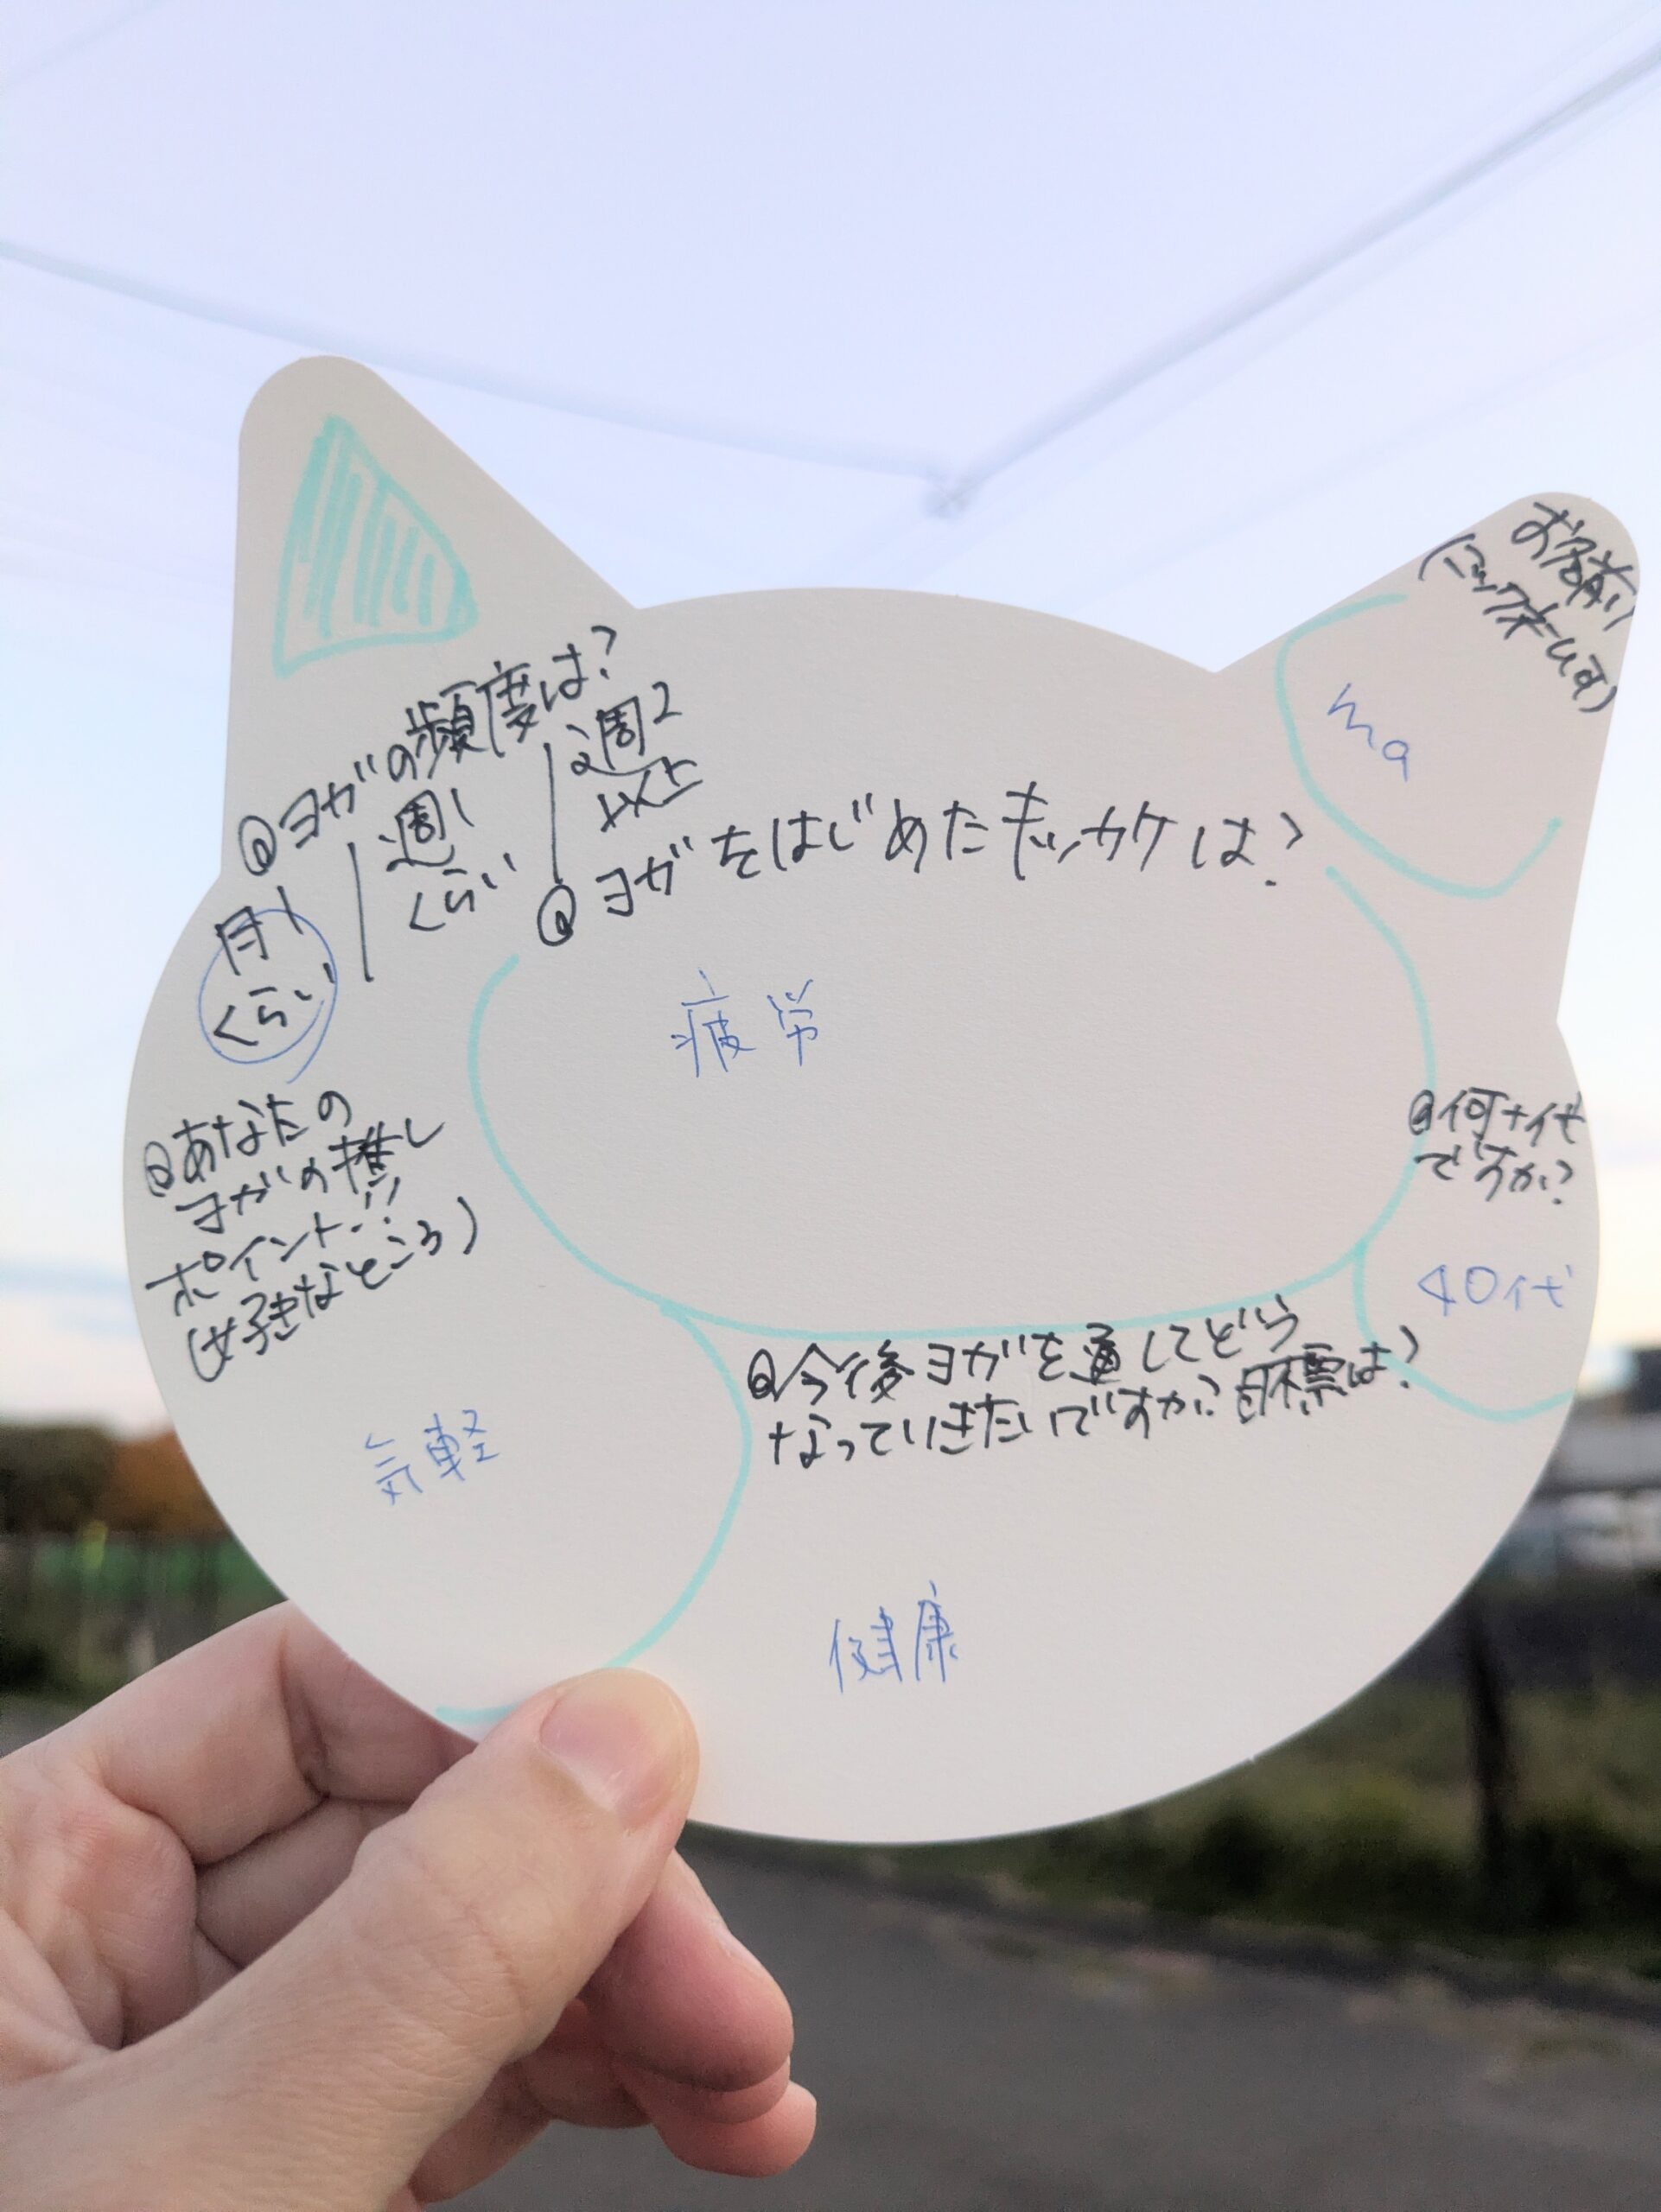 お名前
(ニックネーム可)
ma
Qヨガの頻度は?
月1
くらい
週1
くらい
週2
以上
Qヨガをはじめたキッカケは?
疲労
Q何十代
ですか?
40代
Qあなたの
ヨガの推し
ポイント!!
(好きなところ)
気軽
Q今後ヨガを通してどう
なっていきたいですか?目標は?
健康